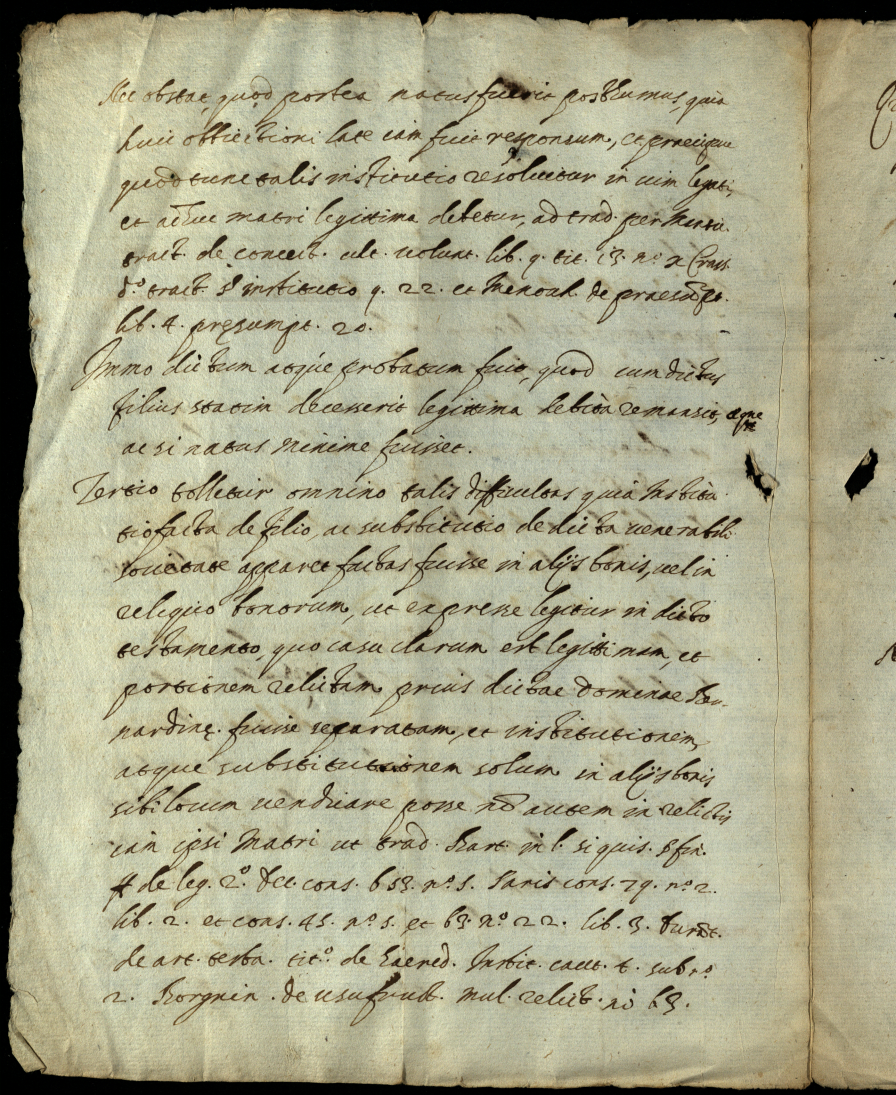 Nec obstat, quod postea natus fuerit posthumus, quia
huic obiectioni late iam fuit responsum, et praecipue
quod tunc talis institutio resolvetur in vim legati,
et adhuc matri legittima debetur, ad trad. per
tract. de coniect. ult. volunt. lib. 9. tit. 13. nº 2 Crass.
dº tract. § institutio q. 22. et Menoch. de praesumpt.
lib. 4. pręsumpt. 20.
Immo dictum atque probatum fuit, quod cum dictus
filius statim decesserit legittima debita remansit, aeque
ac si natus minime fuisset.
Tertio tolletur omnino talis difficultas quia institu
tio facta de filio, ac substitutio de dicta venerabili
societate apparet factas fuisse in alijs bonis, vel in
reliquo bonorum, ut expresse legitur in dicto
testamento, quo casu clarum est legittimam, et
portionem relictam prius dictae Dominae Ber-
nardinę. fuisse separatam, et institutionem,
atque substitutionem solum in alijs bonis
sibi locum vendicare posse nō autem in relictis
iam ipsi Matri ut trad. Bart. in l. si quis. § fin.
ff de leg. 2º Dec. cons. 653. nº 5. Paris cons. 79. nº 2.
lib. 2. et cons. 45. nº 5. et 63. nº 22. lib. 3.
de art. testa. titº. de haered. caut. 6. sub nº
2. Borgnin. de usufruct. mul. relict. nº 63.